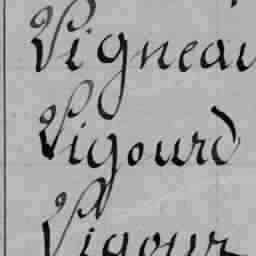 Vigneau
Vigourd
Vigour